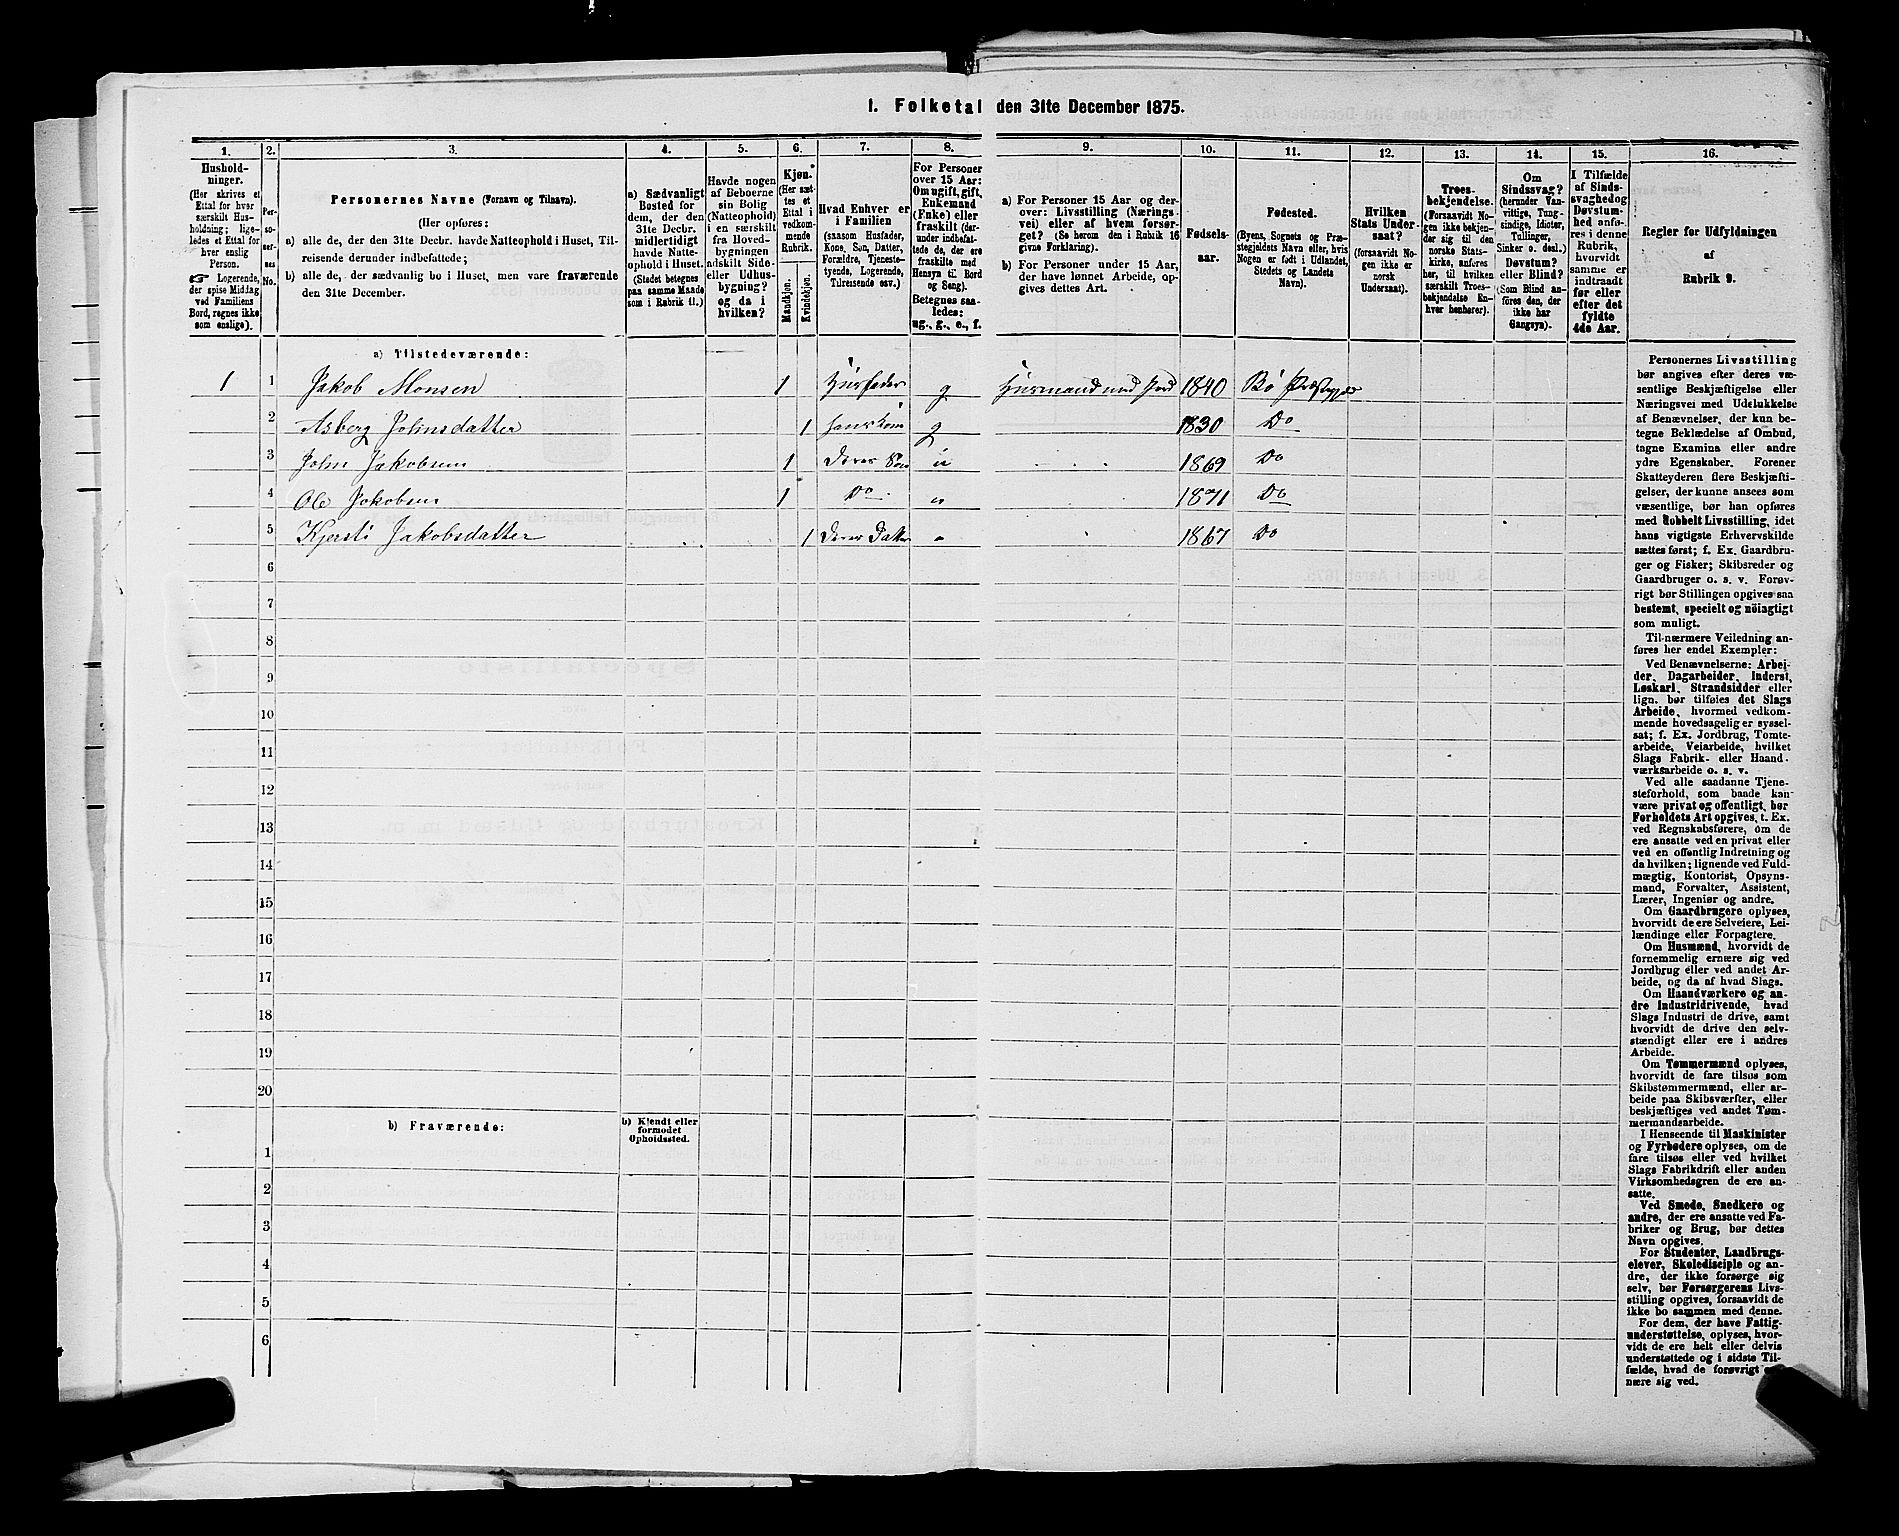 I. Folketal den 31te December 1875.
1.
Hushold-
ninger.
(Her skrives et
Ettal for hver
særskilt Hus-
holdning; lige-
ledes et Ettal for
hver enslig
Person.
☞ Logerende,
der spise Middag
ved Familiens
Bord, regnes ikke
som enslige).
2.
Per-
so-
ner-
nes
No.
3.
Personernes Navne (Fornavn og Tilnavn).
(Her opføres:
a) alle de, der den 31te Decbr. havde Natteophold i Huset, Til-
reisende derunder indbefattede;
b) alle de, der sædvanlig bo i Huset, men vare fraværende
den 31te December.
4.
a) Sædvanligt
Bosted for
dem, der den
31te Decbr.
midlertidigt
havde Natte-
ophold i Huset.
(Stedet betegnes
paa samme Maade
som i Rubrik 11.)
5.
Havde nogen
af Beboerne
sin Bolig
(Natteophold)
i en særskilt
fra Hoved-
bygningen
adskilt Side-
eller Udhus-
bygning?
og da i
hvilken?
6.
Kjøn.
(Her sæt-
tes et
Ettal i
vedkom-
mende
Rubrik.
Mandkjøn.
Kvindekjøn.
7.
Hvad Enhver er
i Familien
(saasom Husfader,
Kone, Søn, Datter,
Forældre, Tjeneste-
tyende, Logerende,
Tilreisende osv.)
8.
For Personer
over 15 Aar:
Om ugift, gift,
Enkemand
(Enke) eller
fraskilt (der-
under indbefat-
tede de, der ere
fraskille med
Hensyn til Bord
og Seng).
Betegnes saa-
ledes:
ug., g., e., f.
9.
a) For Personer 15 Aar og der-
over: Livsstilling (Nærings-
vei) eller af hvem forsør-
get? (Se herom den i Rubrik 16
givne Forklaring).
b) For Personer under 15 Aar,
der have lønnet Arbeide, op-
gives dettes Art.
10.
Fødsels-
aar.
11.
Fødested.
(Byens, Sognets og Præ-
stegjeldets Navn eller, hvis
Nogen er født i Udlandet,
Stedets og Landets
Navn).
12.
Hvilken
Stats Under-
saat?
(forsaavidt No-
gen ikke er
norsk
Undersaat).
13.
Troes-
bekjendelse.
(Forsaavidt No-
gen ikke bekjen-
der sig til den
norske Stats-
kirke, anføres
her, til hvilken
særskilt Troes-
bekjendelse En-
hver henhører).
14.
Om
Sindssvag?
(herunder Van-
vittige, Tung-
sindige, Idioter,
Tullinger,
Sinker o. desl.)
Døvstum?
eller Blind?
(Som Blind an-
føres den, der
ikke har
Gangsyn).
15.
I Tilfælde
af Sinds-
svaghed og
Døvstum-
hed anfø-
res i denne
Rubrik,
hvorvidt
samme er
indtraadt
før eller
efter det
fyldte
4de Aar.
16.
Regler for Udfyldningen
af
Rubrik 9.
a) Tilstedeværende:
1 1 Jakob Monsen 1 Husfader g Husmand med Jord 1840 Bø Præstegjeld
2 Asberg Johnsdatter 1 hans kone g 1830 Do
3 John Jakobsen 1 Deres Søn u 1869 Do
4 Ole Jakobsen 1 Do 1871 Do
5 Kjersti Jakobsdatter 1 Deres Datter 1867 Do
6
7
8
9
10
11
12
13
14
15
16
17
18
19
20
b) Fraværende:
b) Kjendt eller
formodet
Opholdssted.
1
2
3
4
5
6
Personernes Livsstilling
bør angives efter deres væ-
sentlige Beskjæftigelse eller
Næringsvei med Udelukkelse
af Benævnelser, der kun be-
tegne Beklædelse af Ombud,
tagne Examina eller andre
ydre Egenskaber. Forener
Skatteyderen flere Beskjæfti-
gelser, der kunne ansees som
væsentlige, bør han opføres
med dobbelt Livsstilling, idet
hans vigtigste Erhvervskilde
sættes først; f. Ex. Gaardbru-
ger og Fisker; Skibsreder og
Gaardbruger o. s. v. Forøv-
rigt bør Stillingen opgives saa
bestemt, specielt og nöiagtigt
som muligt.
Til nærmere Veiledning an-
føres her endel Exempler:
Ved Benævnelserne: Arbei-
der, Dagarbeider, Inderst,
Løskarl, Strandsidder eller
lign. bør tilføies det Slags
Arbeide, hvormed vedkom-
mende hovedsagelig er syssel-
sat; f. Ex. Jordbrug, Tomte-
arbeide, Veiarbeide, hvilket
Slags Fabrik- eller Haand-
værksarbeide o. s. v.
Ved alle saadanne Tjene-
steforhold, som baade kan
være privat og offentligt, bør
Forholdets Art opgives, t. Ex.
ved Regnskabsførere, om de
ere ansatte ved en privat eller
ved en offentlig Indretning og
da hvilken; lignende ved Fuld-
mægtig, Kontorist, Opsyns-
mand, Forvalter, Assistent,
Lærer, Ingeniør og andre.
Om Gaardbrugere oplyses,
hvorvidt de ere Selveiere, Lei-
lændinge eller Forpagtere.
Om Husmænd, hvorvidt de
fornemmelig ernære sig ved
Jordbrug eller ved andet Ar-
beide, og da af hvad Slags.
Om Haandværkere og an-
dre Industridrivende, hvad
Slags Industri de drive, samt
hvorvidt de drive den selv-
stændigt eller ere i andres
Arbeide.
Om Tømmermænd oplyses,
hvorvidt de fare tilsøs som
Skibstømmermænd, eller ar-
beide paa Skibsværfter, eller
beskjæftiges ved andet Tøm-
mermandsarbeide.
I Henseende til Maskinister
og Fyrbødere oplyses, om de
fare tilsøs eller ved hvilket
Slags Fabrikdrift eller anden
Virksomhedsgren de ere an-
satte.
Ved Smede, Snedkere og
andre, der ere ansatte ved Fa-
briker og Brug, bør dettes
Navn opgives.
For Studenter, Landbrugs-
elever, Skoledisciple og an-
dre, der ikke forsørge sig
selv, bør Forsørgerens Livs-
stilling opgives, forsaavidt de
ikke bo sammen med denne.
For dem, der have Fattig-
understøttelse, oplyses, hvor-
vidt de ere helt eller delvis
understøttede og i sidste Til-
fælde, hvad de forøvrigt er-
nære sig ved.